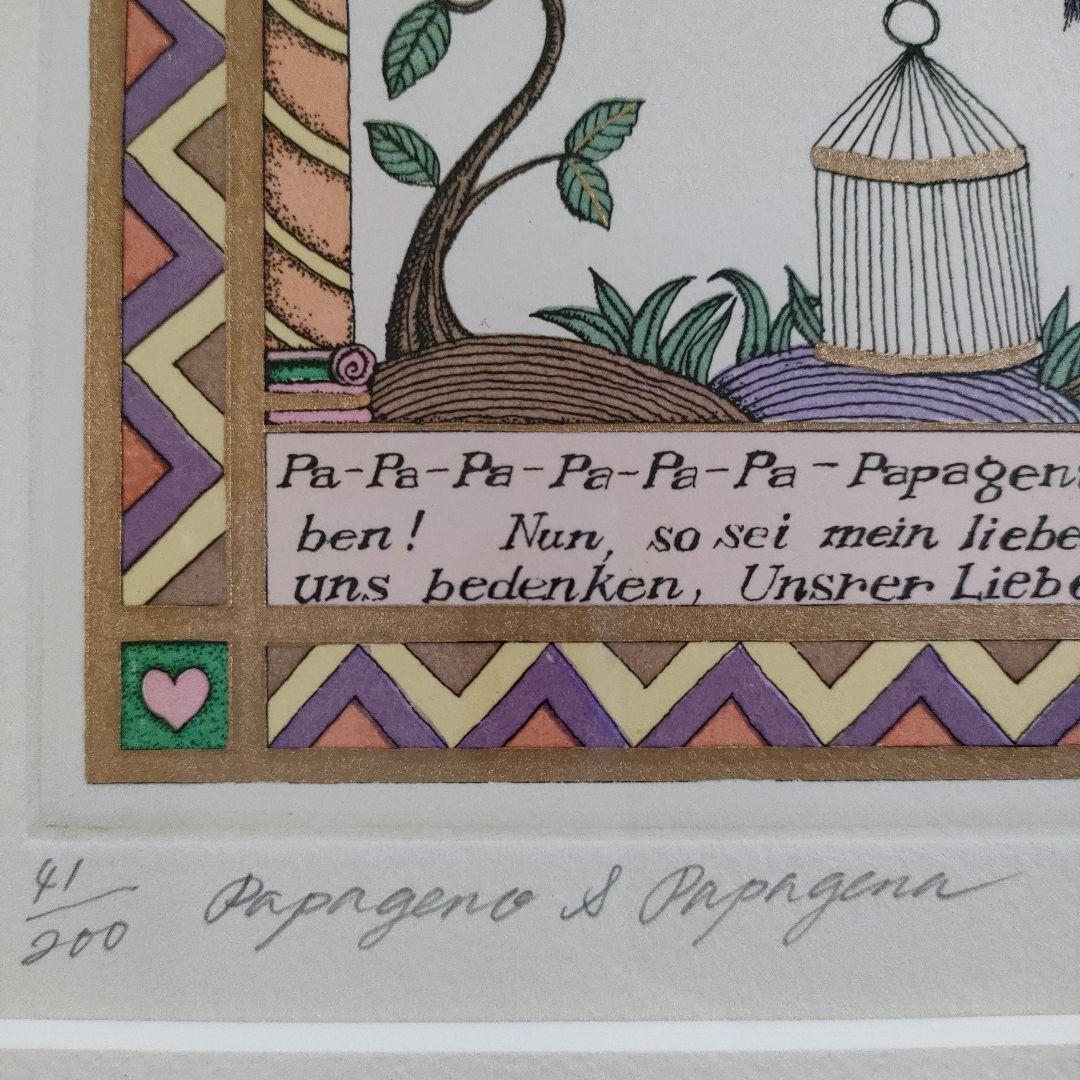 Pa-Pa-Pa-Pa-Pa-Pa-Papagen
ben! Nun, so sei mein liebe
uns bedenken, Unsrer Liebe
41/200 Papageno & Papagena